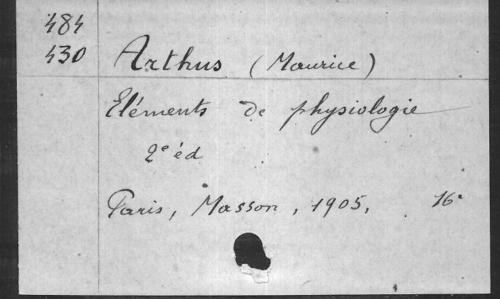 484
430 Arthus (Maurice)
Eléments de physiologie
2e éd
Paris, Masson, 1905, 16°